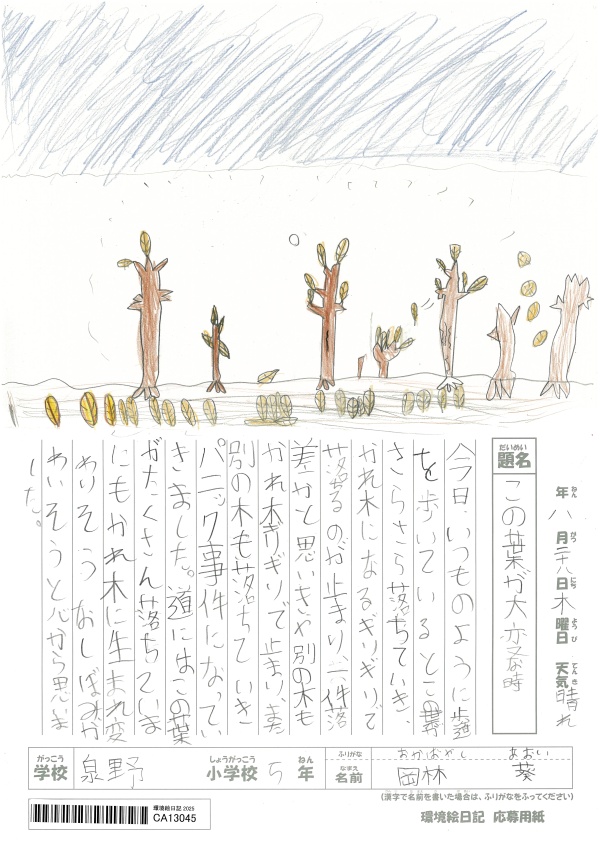 年 八月二十八日木曜日 天気晴れ
ねん がつ にち ようび てんき
だいめい
題名
この葉が大変な時
今日いつものように歩道
を歩いているとこの葉
さらさら落ちていき、
かれ木になるぎりぎりで
落ちるのが止まり一件落
差かと思いきや別の木も
かれ木ギリギリで止まり、また
別の木も落ちていき
パニック事件になってい
きました。道にはこの葉
がたくさん落ちていま
にもかれ木に生まれ変
わりそうなしぼみか
わいそうと心から思いま
した。
がっこう
学校 泉野
しょうがっこう
小学校 5 ねん
年
ふりがな おかばやし あおい
なまえ
名前 岡林 葵
(漢字で名前を書いた場合は、ふりがなをふってください)
環境絵日記 応募用紙
環境絵日記 2025
CA13045